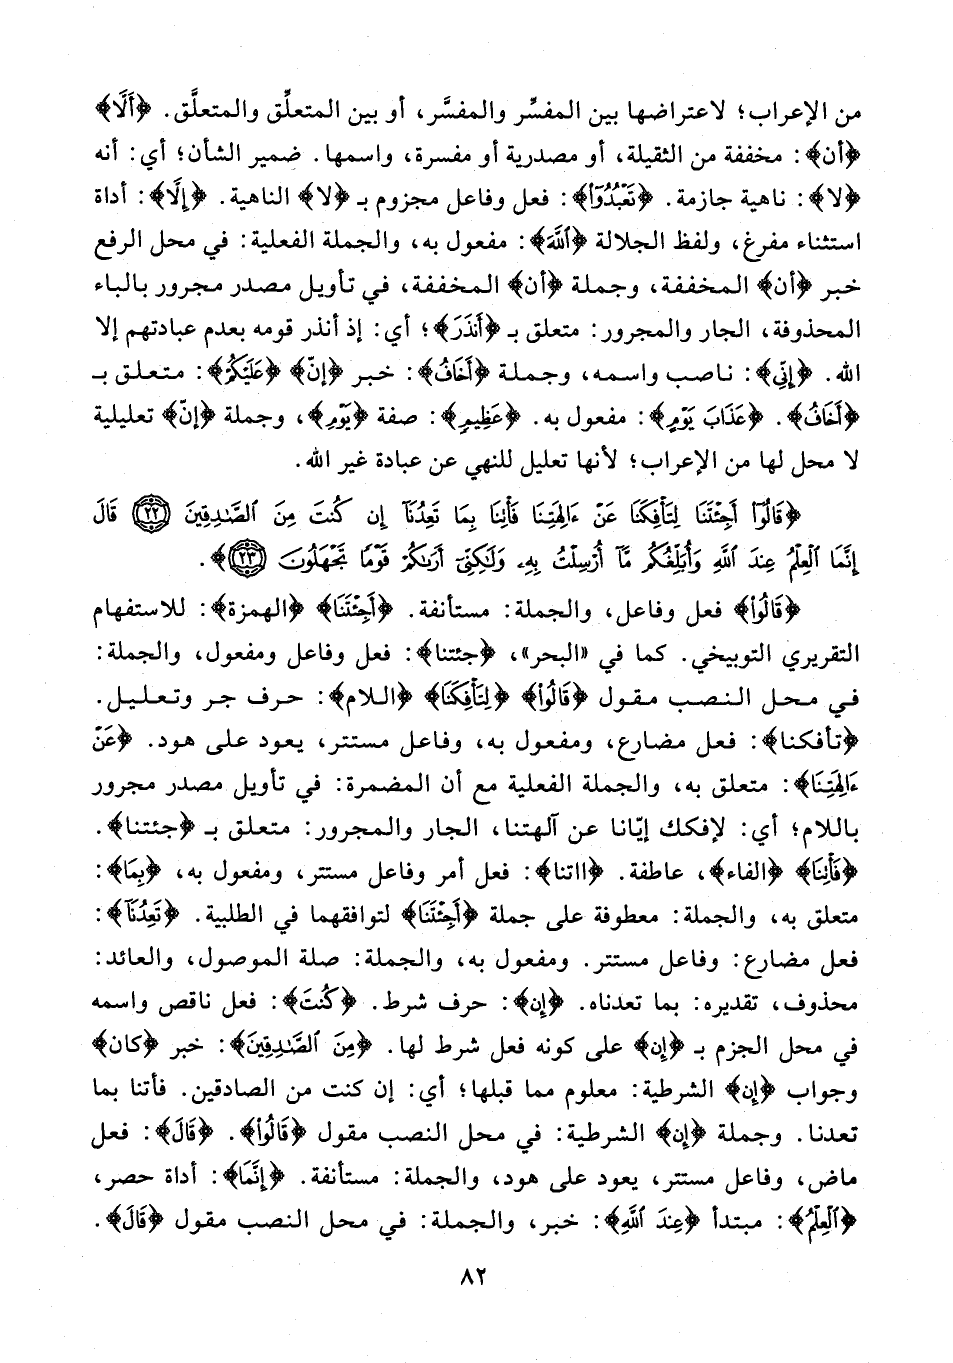 من الإعراب؛ لاعتراضها بين المفسِّر والمفسَّر، أو بين المتعلِّق والمتعلَّق. ﴿أَلَّا﴾
﴿أن﴾: مخففة من الثقيلة، أو مصدرية أو مفسرة، واسمها. ضمير الشأن؛ أي: أنه
﴿لا﴾: ناهية جازمة. ﴿تَعْبُدُوٓا۟﴾: فعل وفاعل مجزوم بـ ﴿لا﴾ الناهية. ﴿إِلَّا﴾: أداة
استثناء مفرغ، ولفظ الجلالة ﴿ٱللَّهَ﴾: مفعول به، والجملة الفعلية: في محل الرفع
خبر ﴿أن﴾ المخففة، وجملة ﴿أن﴾ المخففة، في تأويل مصدر مجرور بالباء
المحذوفة، الجار والمجرور: متعلق بـ ﴿أَنذَرَ﴾؛ أي: إذ أنذر قومه بعدم عبادتهم إلا
الله. ﴿إِنِّي﴾: ناصب واسمه، وجملة ﴿أَخَافُ﴾: خبر ﴿إنّ﴾ ﴿عَلَيْكُمْ﴾: متعلق بـ
﴿أَخَافُ﴾. ﴿عَذَابَ يَوْمٍ﴾: مفعول به. ﴿عَظِيمٍ﴾: صفة ﴿يَوْمٍ﴾، وجملة ﴿إنّ﴾ تعليلية
لا محل لها من الإعراب؛ لأنها تعليل للنهي عن عبادة غير الله.
﴿قَالُوٓا۟ أَجِئْتَنَا لِتَأْفِكَنَا عَنْ ءَالِهَتِنَا فَأْتِنَا بِمَا تَعِدُنَآ إِن كُنتَ مِنَ ٱلصَّـٰدِقِينَ ٢٢ قَالَ
إِنَّمَا ٱلْعِلْمُ عِندَ ٱللَّهِ وَأُبَلِّغُكُم مَّآ أُرْسِلْتُ بِهِۦ وَلَـٰكِنِّىٓ أَرَىٰكُمْ قَوْمًا تَجْهَلُونَ ٢٣﴾.
﴿قَالُوٓا۟﴾ فعل وفاعل، والجملة: مستأنفة. ﴿أَجِئْتَنَا﴾ ﴿الهمزة﴾: للاستفهام
التقريري التوبيخي. كما في «البحر»، ﴿جئتنا﴾: فعل وفاعل ومفعول، والجملة:
في محل النصب مقول ﴿قَالُوٓا۟﴾ ﴿لِتَأْفِكَنَا﴾ ﴿اللام﴾: حرف جر وتعليل.
﴿تأفكنا﴾: فعل مضارع، ومفعول به، وفاعل مستتر، يعود على هود. ﴿عَنْ
ءَالِهَتِنَا﴾: متعلق به، والجملة الفعلية مع أن المضمرة: في تأويل مصدر مجرور
باللام؛ أي: لإفكك إيّانا عن آلهتنا، الجار والمجرور: متعلق بـ ﴿جئتنا﴾.
﴿فَأْتِنَا﴾ ﴿الفاء﴾، عاطفة. ﴿ااتنا﴾: فعل أمر وفاعل مستتر، ومفعول به، ﴿بِمَا﴾:
متعلق به، والجملة: معطوفة على جملة ﴿أَجِئْتَنَا﴾ لتوافقهما في الطلبية. ﴿تَعِدُنَآ﴾:
فعل مضارع: وفاعل مستتر. ومفعول به، والجملة: صلة الموصول، والعائد:
محذوف، تقديره: بما تعدناه. ﴿إِن﴾: حرف شرط. ﴿كُنتَ﴾: فعل ناقص واسمه
في محل الجزم بـ ﴿إِن﴾ على كونه فعل شرط لها. ﴿مِنَ ٱلصَّـٰدِقِينَ﴾: خبر ﴿كان﴾
وجواب ﴿إن﴾ الشرطية: معلوم مما قبلها؛ أي: إن كنت من الصادقين. فأتنا بما
تعدنا. وجملة ﴿إن﴾ الشرطية: في محل النصب مقول ﴿قَالُوٓا۟﴾. ﴿قَالَ﴾: فعل
ماض، وفاعل مستتر، يعود على هود، والجملة: مستأنفة. ﴿إِنَّمَا﴾: أداة حصر،
﴿ٱلْعِلْمُ﴾: مبتدأ ﴿عِندَ ٱللَّهِ﴾: خبر، والجملة: في محل النصب مقول ﴿قَالَ﴾.
٨٢